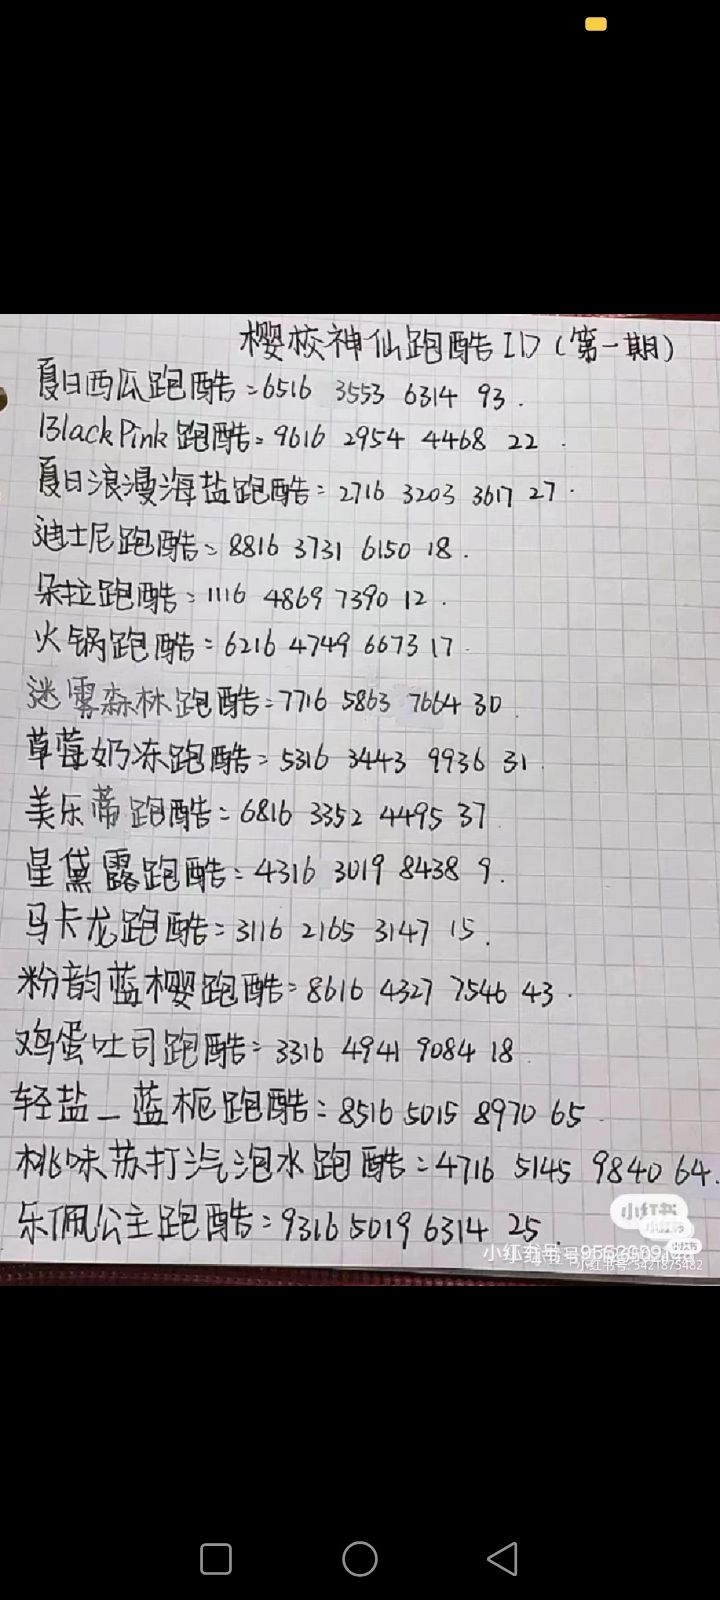 樱校神仙跑酷ID（第一期）
夏日西瓜跑酷=6516 3553 6314 93.
BlackPink跑酷=9616 2954 4468 22.
夏日浪漫海盐跑酷=2716 3203 3617 27.
迪士尼跑酷=8816 3731 6150 18.
朵拉跑酷=1116 4869 7390 12.
火锅跑酷=6216 4749 6673 17.
迷雾森林跑酷=7716 5863 7664 30.
草莓奶冻跑酷=5316 3443 9936 31.
美乐蒂跑酷=6816 3352 4495 37
星黛露跑酷=4316 3019 8438 9.
马卡龙跑酷=3116 2165 3147 15.
粉韵蓝樱跑酷=8616 4327 7546 43.
鸡蛋吐司跑酷=3316 4941 9084 18
轻盐_蓝栀跑酷=8516 5015 8970 65.
桃味苏打汽泡水跑酷=4716 5145 9840 64.
乐佩公主跑酷=9316 5019 6314 25.
小红书
小红书
小红书
小红书号:5421875482